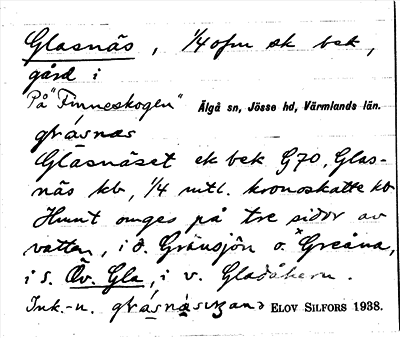 Glasnäs, 1/4 ofm ek bek,
gård i
På "Finneskogen" Älgå sn, Jösse hd, Värmlands län.
glásnæs
Glasnäset ek bek G70, Glas-
näs kb, 1/4 mtl. kronoskatte kb
Hunt omges på tre sidor av
vatten, i ö. Gränsjön o. Greåna,
i s. Öv. Gla, i v. Gladåkern.
Ink.-n. ELOV SILFORS 1938.